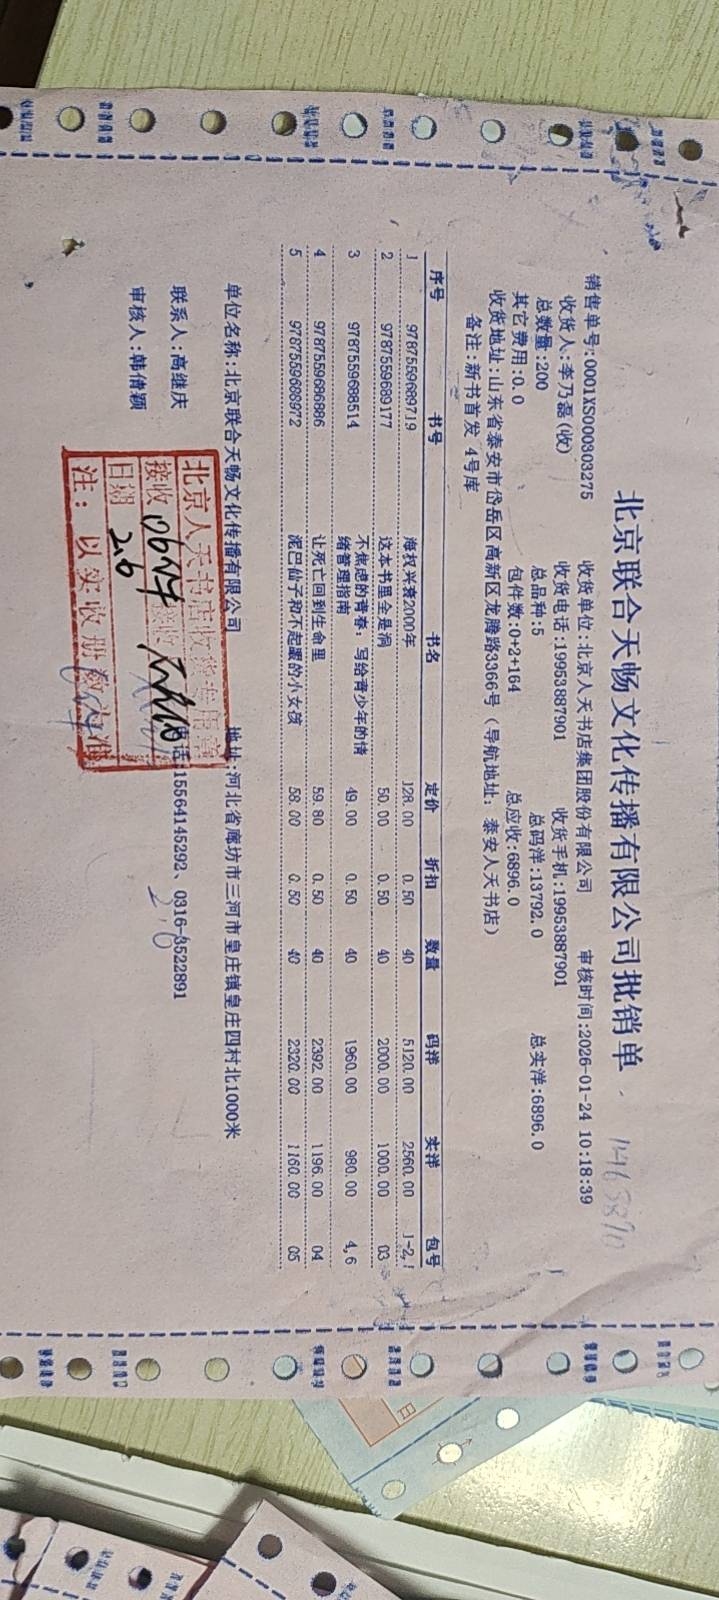 北京联合天畅文化传播有限公司批销单
1468870
销售单号:0001XS000303275 收货单位:北京人天书店集团股份有限公司 审核时间:2026-01-24 10:18:39
收货人:李乃磊(收) 收货电话:19953887901 收货手机:19953887901
总数量:200 总品种:5 总码洋:13792.0 总实洋:6896.0
其它费用:0.0 包件数:0+2+164 总应收:6896.0
收货地址:山东省泰安市岱岳区高新区龙腾路3366号(导航地址:泰安人天书店)
备注:新书首发 4号库
序号 书号 书名 定价 折扣 数量 码洋 实洋 包号
1 9787559689719 海权兴衰2000年 128.00 0.50 40 5120.00 2560.00 1-2,
2 9787559689177 这本书里全是洞 50.00 0.50 40 2000.00 1000.00 03
3 9787559688514 不焦虑的青春:写给青少年的情绪管理指南 49.00 0.50 40 1960.00 980.00 4,6
4 9787559686886 让死亡回到生命里 59.80 0.50 40 2392.00 1196.00 04
5 9787559688972 泥巴仙子和不起眼的小女孩 58.00 0.50 40 2320.00 1160.00 05
单位名称:北京联合天畅文化传播有限公司 地址:河北省廊坊市三河市皇庄镇皇庄四村北1000米
联系人:高继庆 电话:15564145292、0316-3522891
审核人:韩倩颖
北京人天书店收货专用章
接收 06件
日期 2.6
注:以实收册数为准
2.6